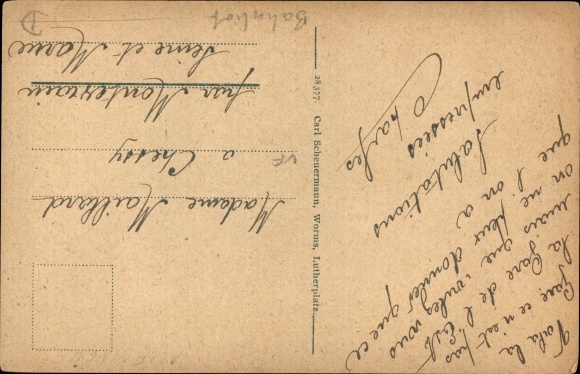 Voila la
Gare, ce n'est pas
la Gare de l'Est
mais que voulez vous
on ne peux donner que ce
que l'on a
Salutations
empressées
Charles
28377 Carl Scheuermann, Worms, Lutherplatz.
Madame Maillard
a Chessy
VF
par Montevrain
Seine et Marne
Bahnhof
D